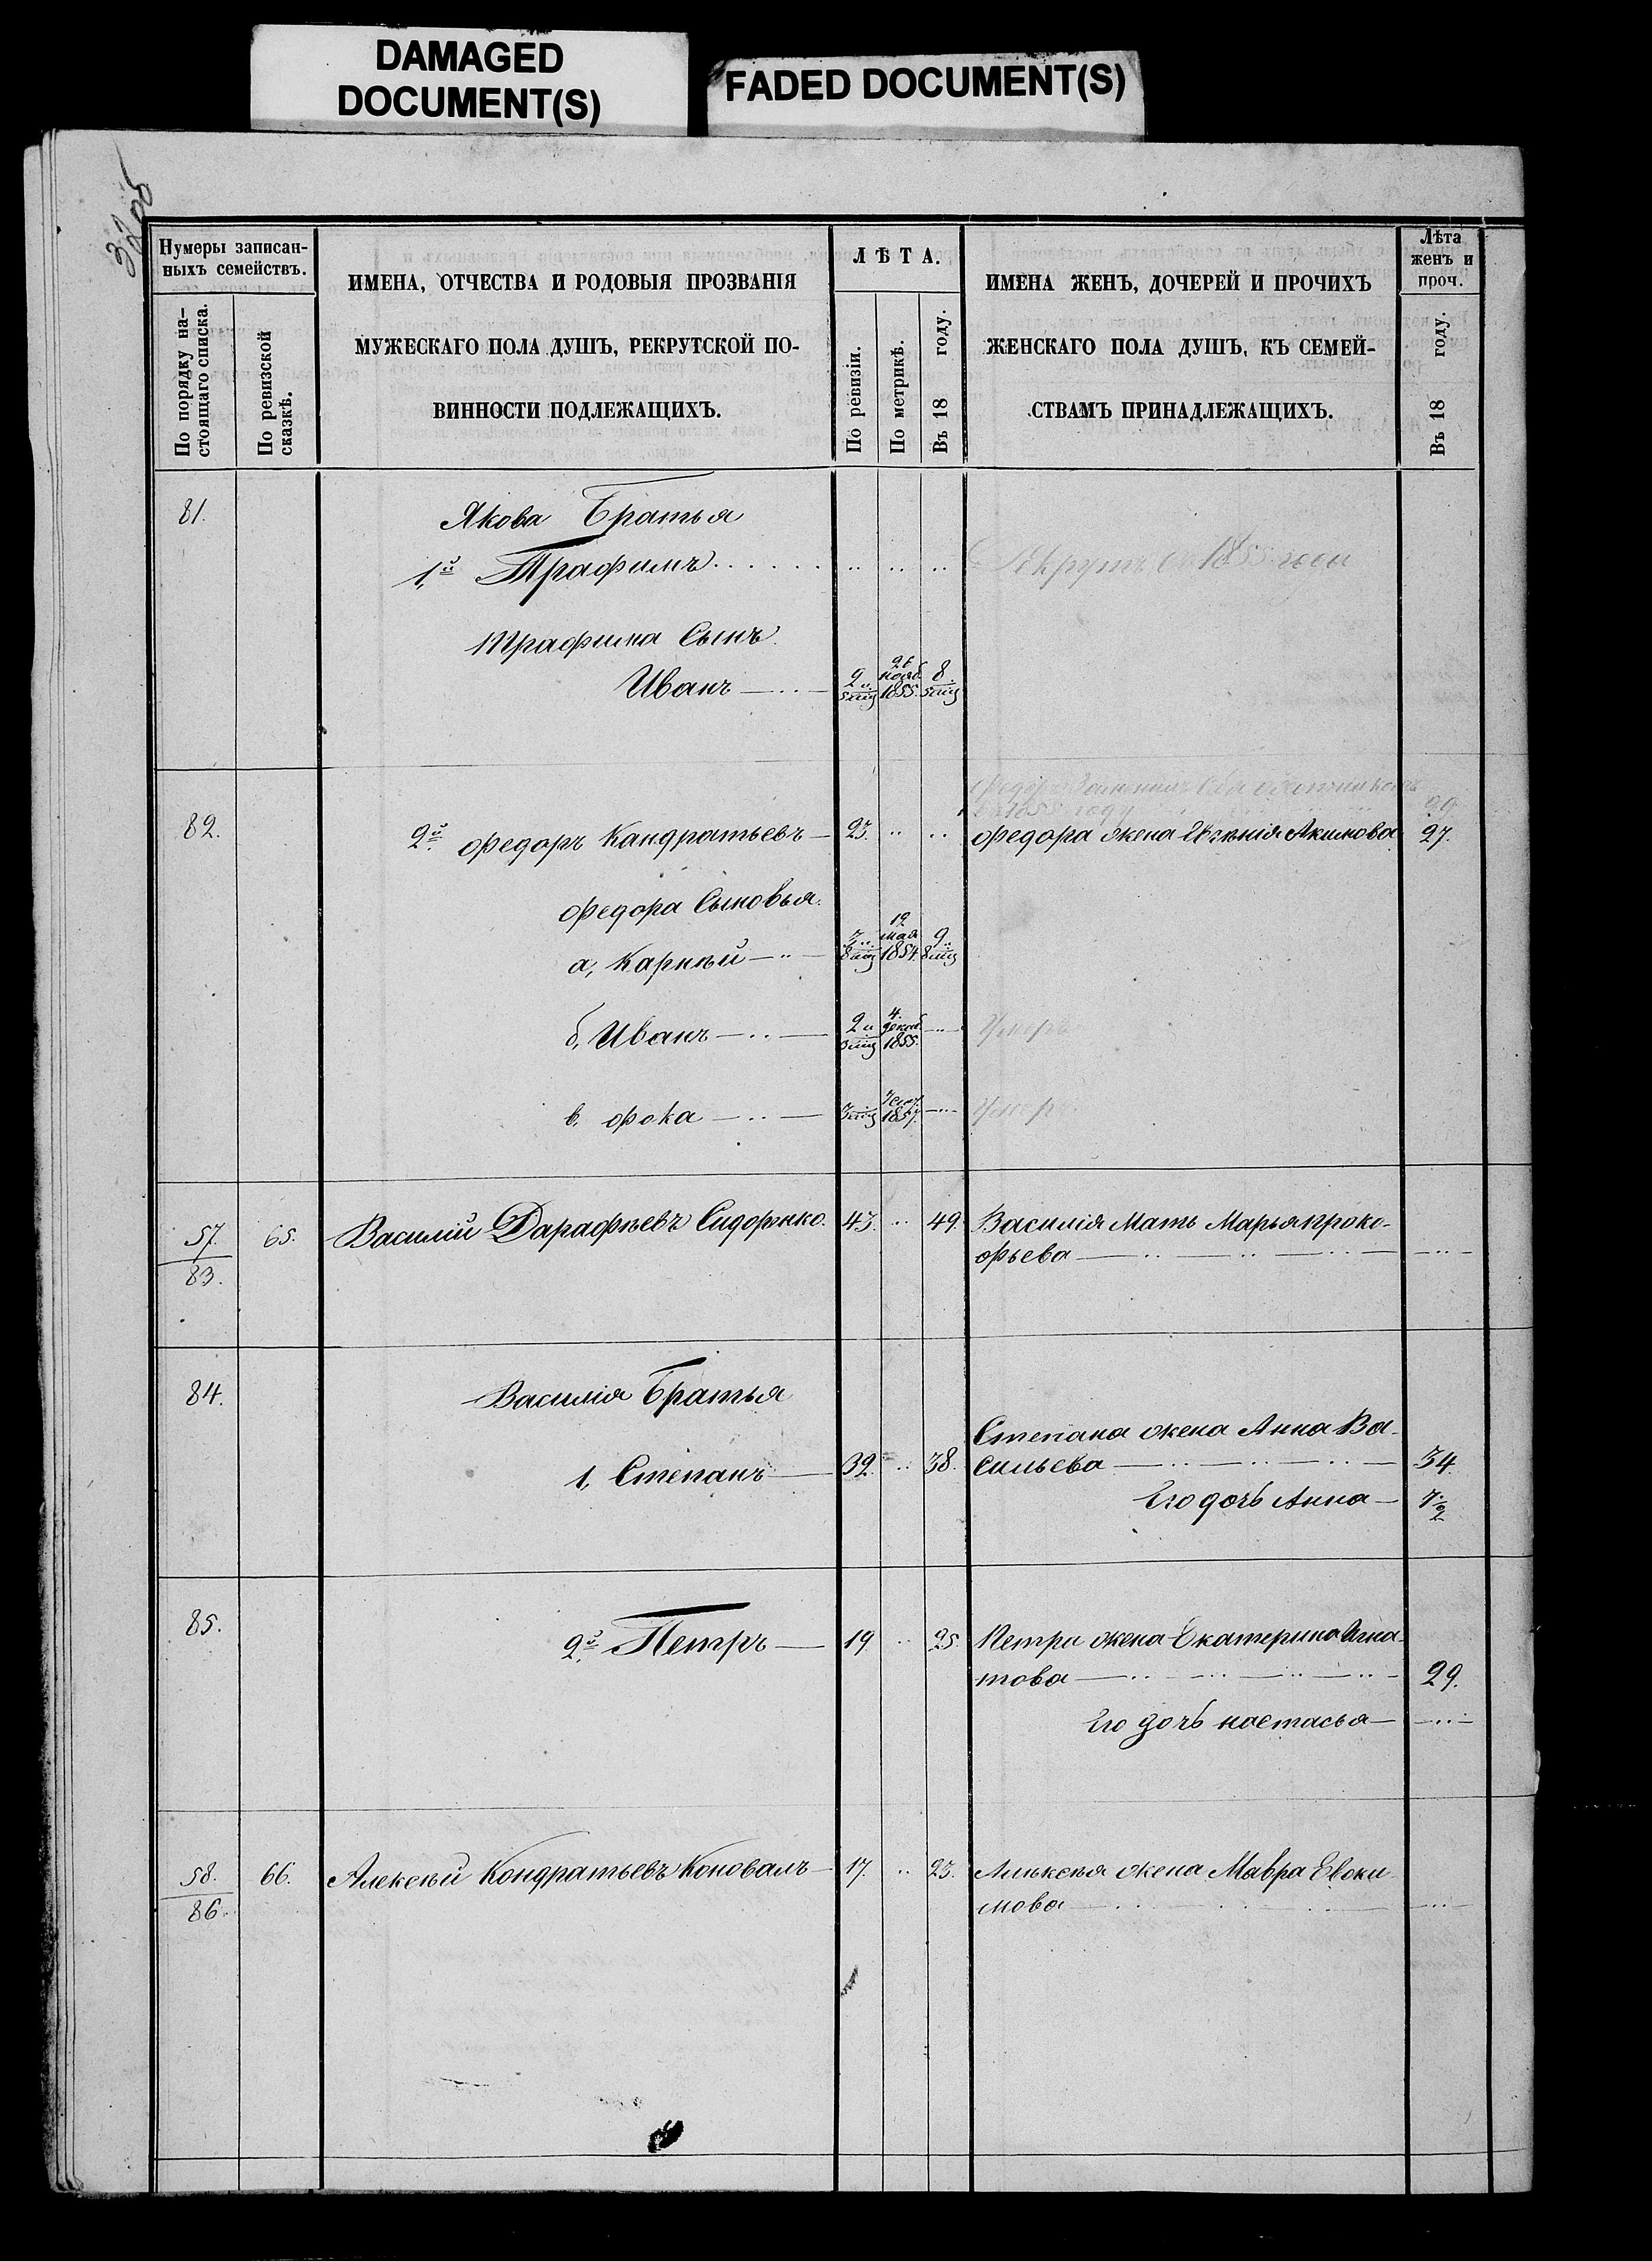 DAMAGED
DOCUMENT(S)
FADED DOCUMENT(S)
Нумеры записан-
ныхъ семействъ.
По порядку на-
стоящаго списка.
По ревизской
сказкѣ.
ИМЕНА, ОТЧЕСТВА И РОДОВЫЯ ПРОЗВАНІЯ
МУЖЕСКАГО ПОЛА ДУШЪ, РЕКРУТСКОЙ ПО-
ВИННОСТИ ПОДЛЕЖАЩИХЪ.
ЛѢТА.
По ревизіи.
По метрикѣ.
Въ 18 году.
ИМЕНА ЖЕНЪ, ДОЧЕРЕЙ И ПРОЧИХЪ
ЖЕНСКАГО ПОЛА ДУШЪ, КЪ СЕМЕЙ-
СТВАМЪ ПРИНАДЛЕЖАЩИХЪ.
Лѣта
женъ и
проч.
Въ 18 году.
81. Якова Братья
1,й Трафимъ 1855 года
Трафима Сынъ
26
Иванъ 2 нояб 8.
5 мц 1855. 5 мц
1855 году 29
82. 2й Федоръ Кандратьевъ 23. Федора жена Акимова 27.
Федора Сыновья.
12
а, Карнѣй 3 мая 9
8 мц 1854. 8 мц
4.
б, Иванъ 2 декаб Умеръ
1855.
в, Фока 3 мц 1857. Умеръ
57. 65. Василій Дарафѣевъ Сидоренко. 43. 49. Василія Мать Марья Проко-
83. фьева
84. Василія Братья
Степана жена Анна Ва-
1, Степанъ 32. 38. сильева 34.
Его дочь Анна
85. 2й Петръ 19 25. Петра жена Екатерина Игна-
това 29.
Его дочь настасья
58. 66. Алексѣй Кондратьевъ Коновалъ 17. 23. Алѣксѣя жена Мавра Евоки-
86. мова